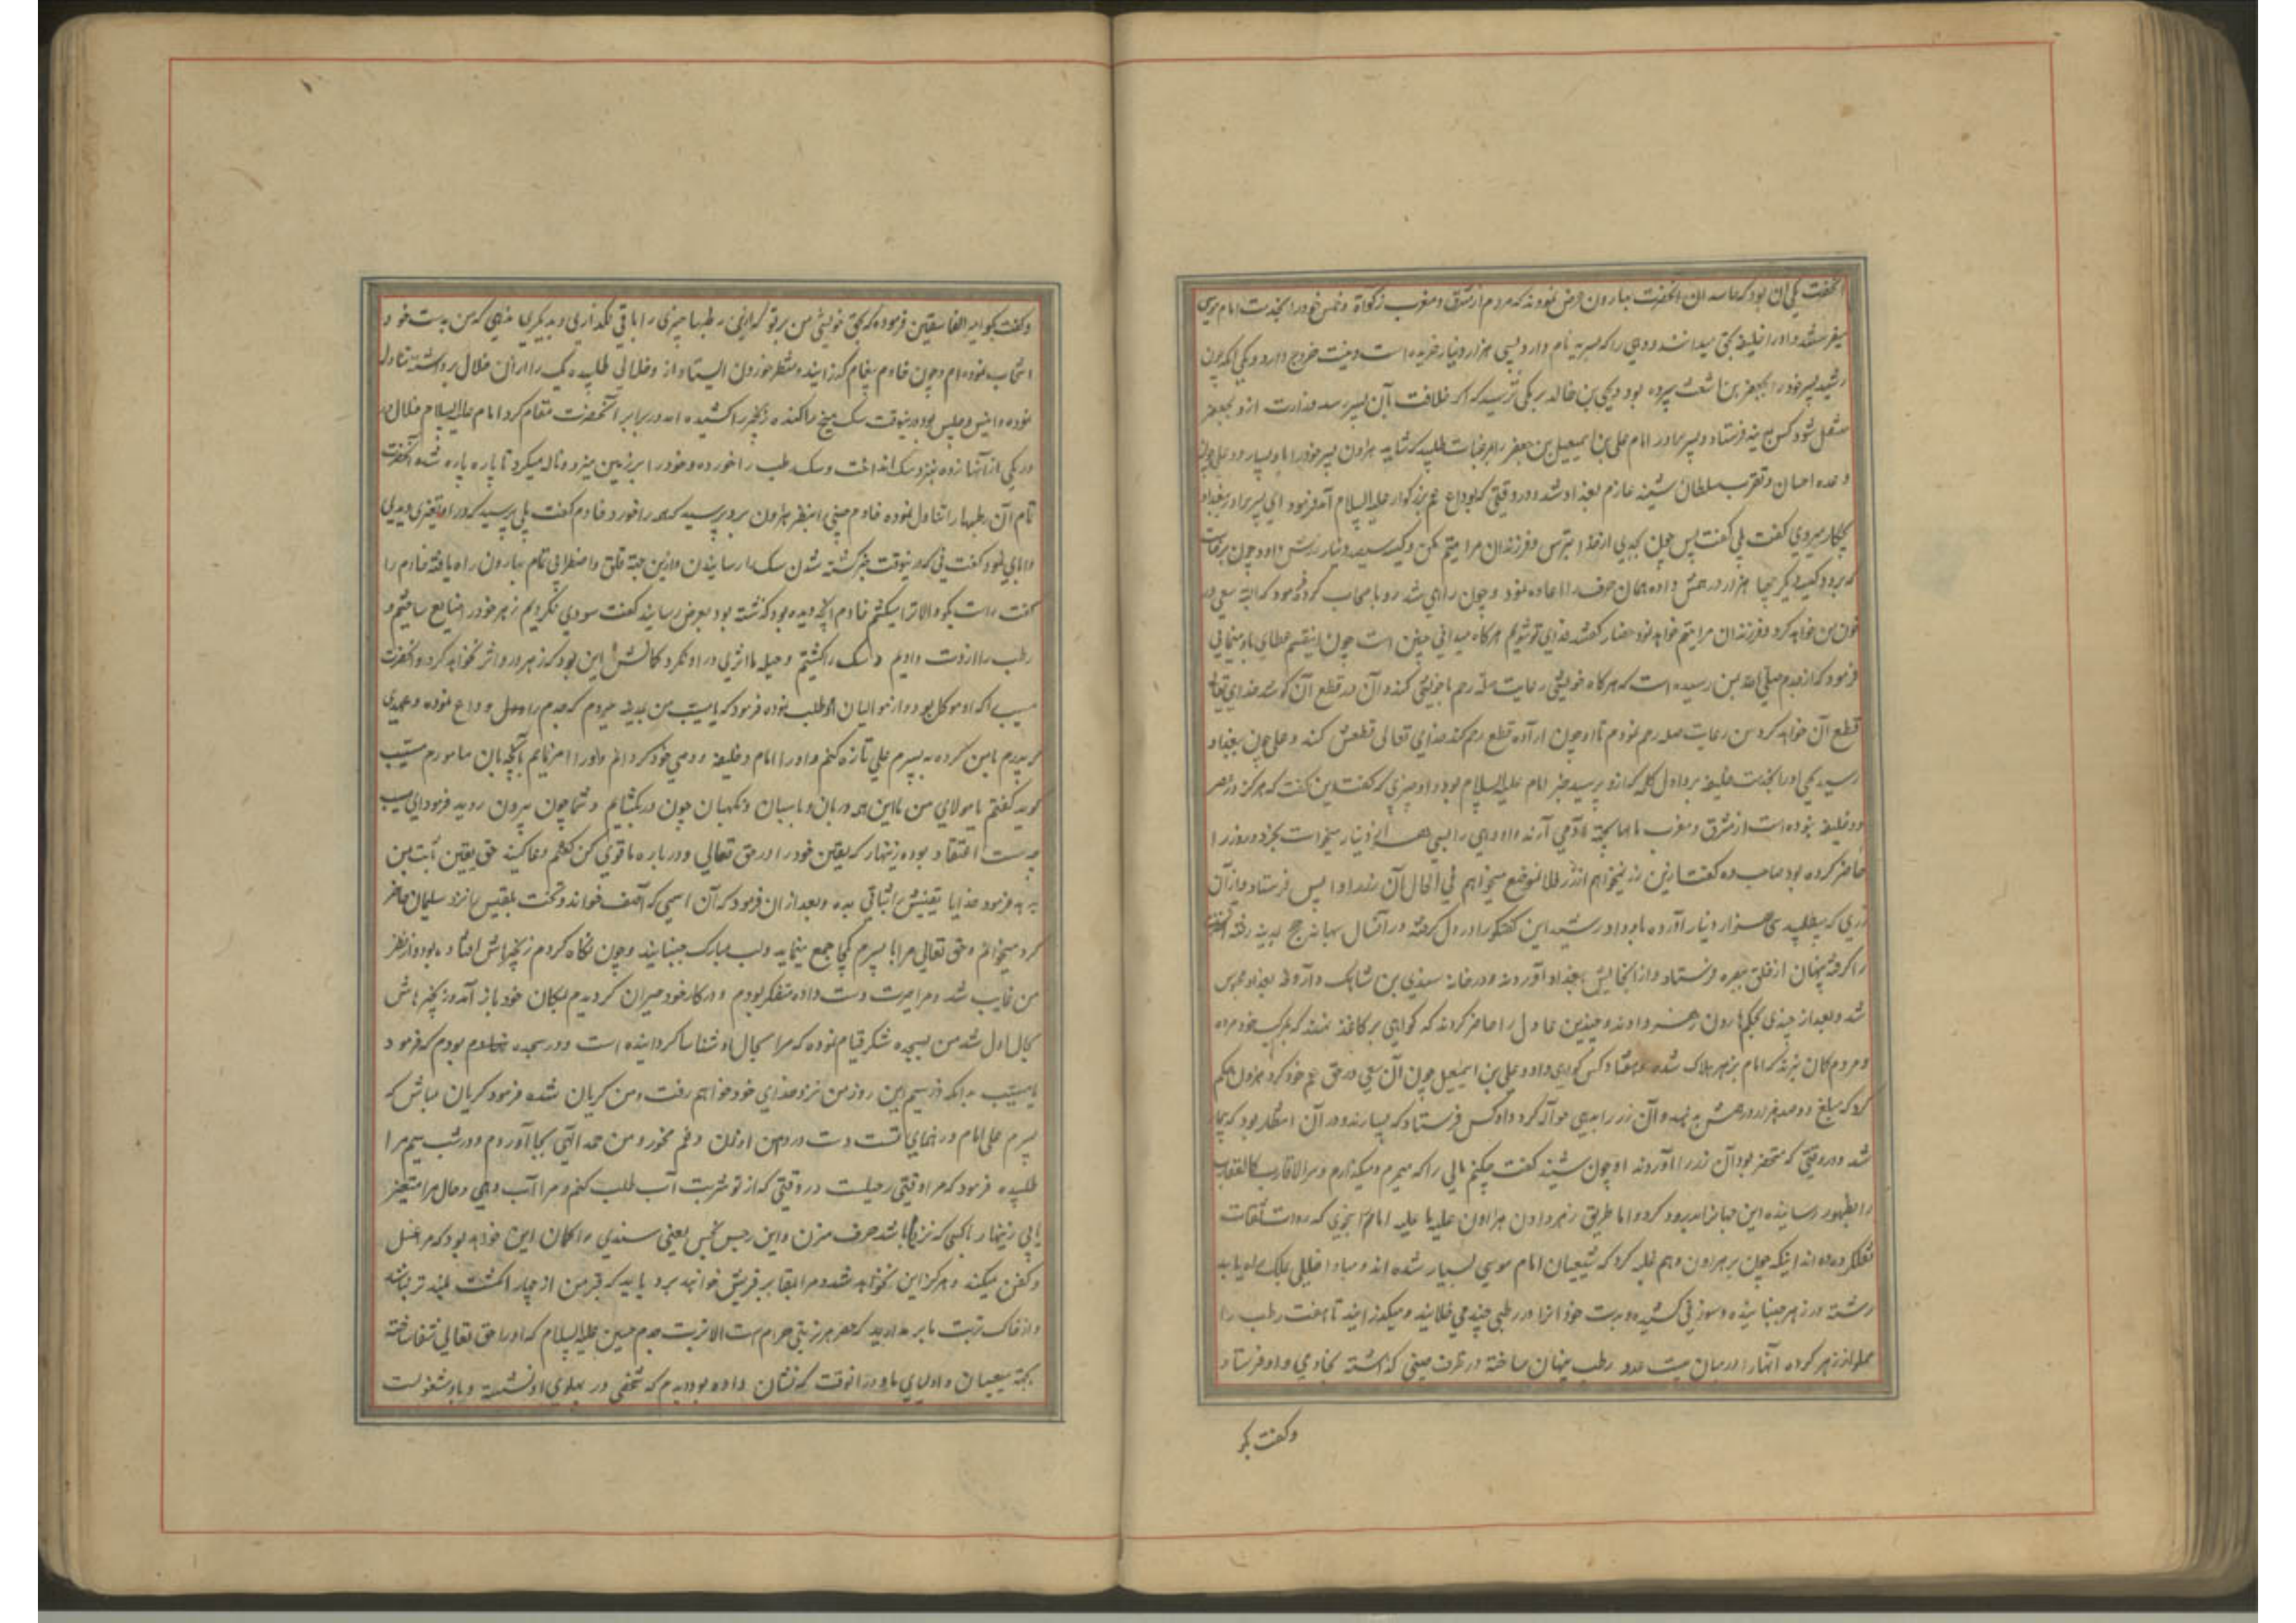 آنحضرت یکی آن بود که حاسدان آنحضرت بهارون عرض نمودند که مردم از مشرق و مغرب زکوة و خمس خود را بخدمت امام موسی
میفرستند و او را خلیفه بحق میدانند و دهی را که میریه نام دارد بسی هزار دینار خریده است و نیت خروج دارد و یکی آنکه چون
رشید پسر خود را بجعفر بن اشعث سپرده بود و یحیی بن خالد برمکی ترسید که اگر خلافت بآن پسر رسد وزارت ازو بجعفر
منتقل شود کس بمدینه فرستاد و پسر برادر امام علی بن اسمعیل بن جعفر را طلبید که شاید هارون پسر خود را باو بسپارد و علی چون
وعده احسان و تقرب سلطان شنید عازم بغداد شد و در وقتی که بوداع عم بزرکوار علیه السلام آمد فرمود ای پسر برادر ببغداد
بچکار میروی گفت بلی گفت پس چون بجدی از خدا بترس و فرزندان مرا یتیم مکن و کیسه سیصد دینار زرش داد و چون برخاست
که برود کیسه دیگر چهار هزار درهمش داده همان حرف را اعاده نمود و چون راهی شد رو باصحاب کرد فرمود که البته سعی در
خون من خواهد کرد و فرزندان مرا یتیم خواهد نمود حضار گفتند فدای تو شویم هرگاه میدانی چنین است چون اینقسم عطای باو مینمائی
فرمود که از جدم صلی الله بمن رسیده است که هرگاه خویشی رعایت صله رحم با خویشی کند و آن در قطع آن کوشد خدای تعالی
قطع آن خواهد کرد من رعایت صله رحم نمودم تا او چون اراده قطع رحم کند خدای تعالی قطعش کند و علی چون ببغداد
رسید یحیی او را بخدمت خلیفه برد اول که ازو پرسید خبر امام علیه السلام بود و او چیزی که گفت این گفت که هرگز در عصر
دو خلیفه نبوده است از مشرق و مغرب مالها بجهة آدمی آرند و او دهی را بسی هزار دینار میخواست بخرد و زر را
حاضر کرده بود صاحب ده گفت ازین زر نمیخواهم از زر فلان موضع میخواهم فی الحال آن زر را واپس فرستاد و از آن
زری که میطلبید سی هزار دینار آورده باو داد رشید این گفتگو را در دل گرفته در آنسال ببهانه حج بمدینه رفته آنحضرت
را گرفته پنهان از خلق ببصره فرستاد و از آنجایش ببغداد آوردند و در خانه سندی بن شاهک در بغداد محبوس
شد و بعد از چندی بحکم هارون زهر دادند و چندین عادل را حاضر کردند که گواهی بر کاغذ نهند که بمرگ خود مرده
و مردم گمان نبرند که امام بزهر هلاک شده و هفتاد کس گواهی داد و علی بن اسمعیل چون آن سعی در حق عم خود کرد هارون حکم
کرد که مبلغ دو صد هزار درهمش بدهند و آن زر را بدهی حواله کرد و او کس فرستاد که بیارند و در آن انتظار بود که بیمار
شد و در وقتی که محتضر بود آن زر را آوردند او چون شنید گفت چکنم مالی را که میمیرم و میگذارم و سر الاقارب کالعقارب
را بظهور رسانیده این جهانرا بدرود کرد و اما طریق زهر دادن هارون علیه ما علیه امام را بنحوی که روات ثقات
نقل کرده اند اینکه چون بر هارون وهم غلبه کرد که شیعیان امام موسی بسیار شده اند و مبادا خللی بملک او یابد
رشته در زهر جنبانیده و سوزنی کشیده و بدست خود آنرا در رطبی چند می خلانید و میگذرانید تا هفت رطب را
مملو از زهر کرده آنها را در میان بیست عدد رطب پنهان ساخته در ظرف چینی گذاشته بخادمی داد و فرستاد
و گفت بگو
و گفت بگو امیر الفاسقین فرموده که بحق خویشی من بر تو که ازین رطبها چیزی را باقی نگذاری و بدیگری ندهی که من بدست خود
انتخاب نموده ام و چون خادم پیغام گذرانید و منتظر خوردن ایستاد از وخلالی طلبیده یک یک را از آن خلال برداشته تناول
نموده و انیس و جلیس بود درینوقت سک میخ را کنده زنجیر را کشیده آمده در برابر آنحضرت مقام کرد امام علیه السلام خلال در
در یکی از آنها زده نزد سک انداخت و سک رطب را خورده و خود را بر زمین میزد و ناله میکرد تا پاره پاره شده آنحضرت
تمام آن رطبها را تناول نموده خادم چینی را بنظر هارون برد پرسید که همه را خورد خادم گفت بلی پرسید که در او تغیری دیدی
گفت نی که درینوقت خبر کشته شدن سک را رسانیدند و ازین جهة قلق و اضطرابی تمام بهارون راه یافته خادم را
گفت راست بگو و الا ترا میکشم خادم آنچه دیده بود و گذشته بود بعرض رسانید گفت سودی نکردیم زهر خود را ضایع ساختیم و
رطب را از دست دادیم و سک را کشتیم و حیله ما اثری در او نکرد گمانش این بود که زهر در او اثر نخواهد کرد و آنحضرت
مسیب را که او موکل بود و از موالیان او طلب نموده فرمود که یا مسیب من بمدینه میروم که جدم را رسول وداع نموده و عهدی
که پدرم با من کرده به پسرم علی تازه کنم و او را امام و خلیفه و وصی خود گردانم و او را امر نمایم بآنچه بآن مامورم مسیب
گوید گفتم یا مولای من با این همه دربان و پاسبان و نگهبان چون در بگشایم و شما چون بیرون روید فرمود ای مسیب
سست اعتقاد بوده زینهار که یقین خود را در حق تعالی و درباره ما قوی کن گفتم دعا کنید حق یقین ثابت بمن
بدهد فرمود خدایا یقینش را ثباتی بده و بعد از آن فرمود که آن اسمی که آصف خواند و تخت بلقیس را نزد سلیمان حاضر
کرد میخوانم و حق تعالی مرا با پسرم یکجا جمع مینماید و لب مبارک جنبانید و چون نگاه کردم زنجیرهاش افتاده بود و از نظر
من غایب شد و مرا حیرت دست داده متفکر بودم و در کار خود حیران گردیدم بمکان خود باز آمد و زنجیرهاش
بحال اول شد من بسجده شکر قیام نموده که مرا بحال او شناسا گردانیده است و در سجده بودم که فرمود
یا مسیب بدانکه در سیم این روز من نزد خدای خود خواهم رفت و من گریان شده فرمود گریان مباش که
پسرم علی امام و رهنمای تست دست در دامن او زن و غم مخور و من حمد الهی بجا آوردم و در شب سیم مرا
طلبیده فرمود که مرا وقتی رحیلست در وقتی که از تو شربت آب طلب کنم و مرا آب دهی و حال مرا متغیر
یابی زینهار با کسی که نزد ما باشد حرف مزن و این رجس نجس یعنی سندی را گمان این خواهد بود که مرا غسل
و کفن میکند و هرگز این نخواهد شد و مرا بمقابر قریش خواهند برد باید که قبر من از چهار انگشت بلندتر نباشد
و از خاک تربت ما بر مدارید که همه هر تربتی حرامست الا تربت جدم حسین علیه السلام که او را حق تعالی شفا ساخته
بجهة شیعیان و اولیای ما و در آنوقت که نشان داده بود دیدم که شخصی در پهلوی او نشسته و باو مشغولست